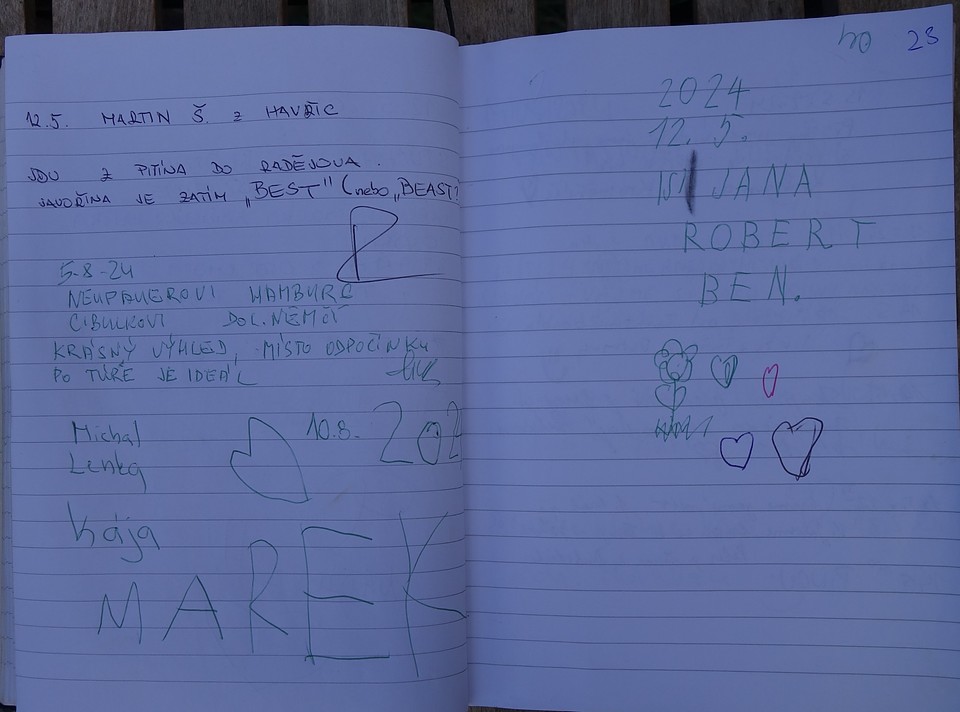 12.5. MARTIN Š. Z HAVŘIC
JDU Z PITÍNA DO RADĚJOVA.
JAVOŘINA JE ZATÍM „BEST" (nebo „BEAST?
5-8-24
NEUPAUEROVI HAMBURG
CIBULKOVI DOL. NĚMČÍ
KRÁSNÝ VÝHLED, MÍSTO ODPOČINKU
PO TÚŘE JE IDEÁL
Michal 10.8. 202
Lenka
Kája
MAREK
23
2024
12. 5.
JANA
ROBERT
BEN.